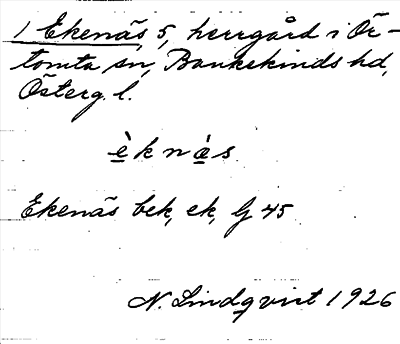 1 Ekenäs 5, herrgård i Ör-
tomta sn, Bankekinds hd,
Österg. l.
èknàs
Ekenäs bek, ek, G 45
N. Lindqvist 1926